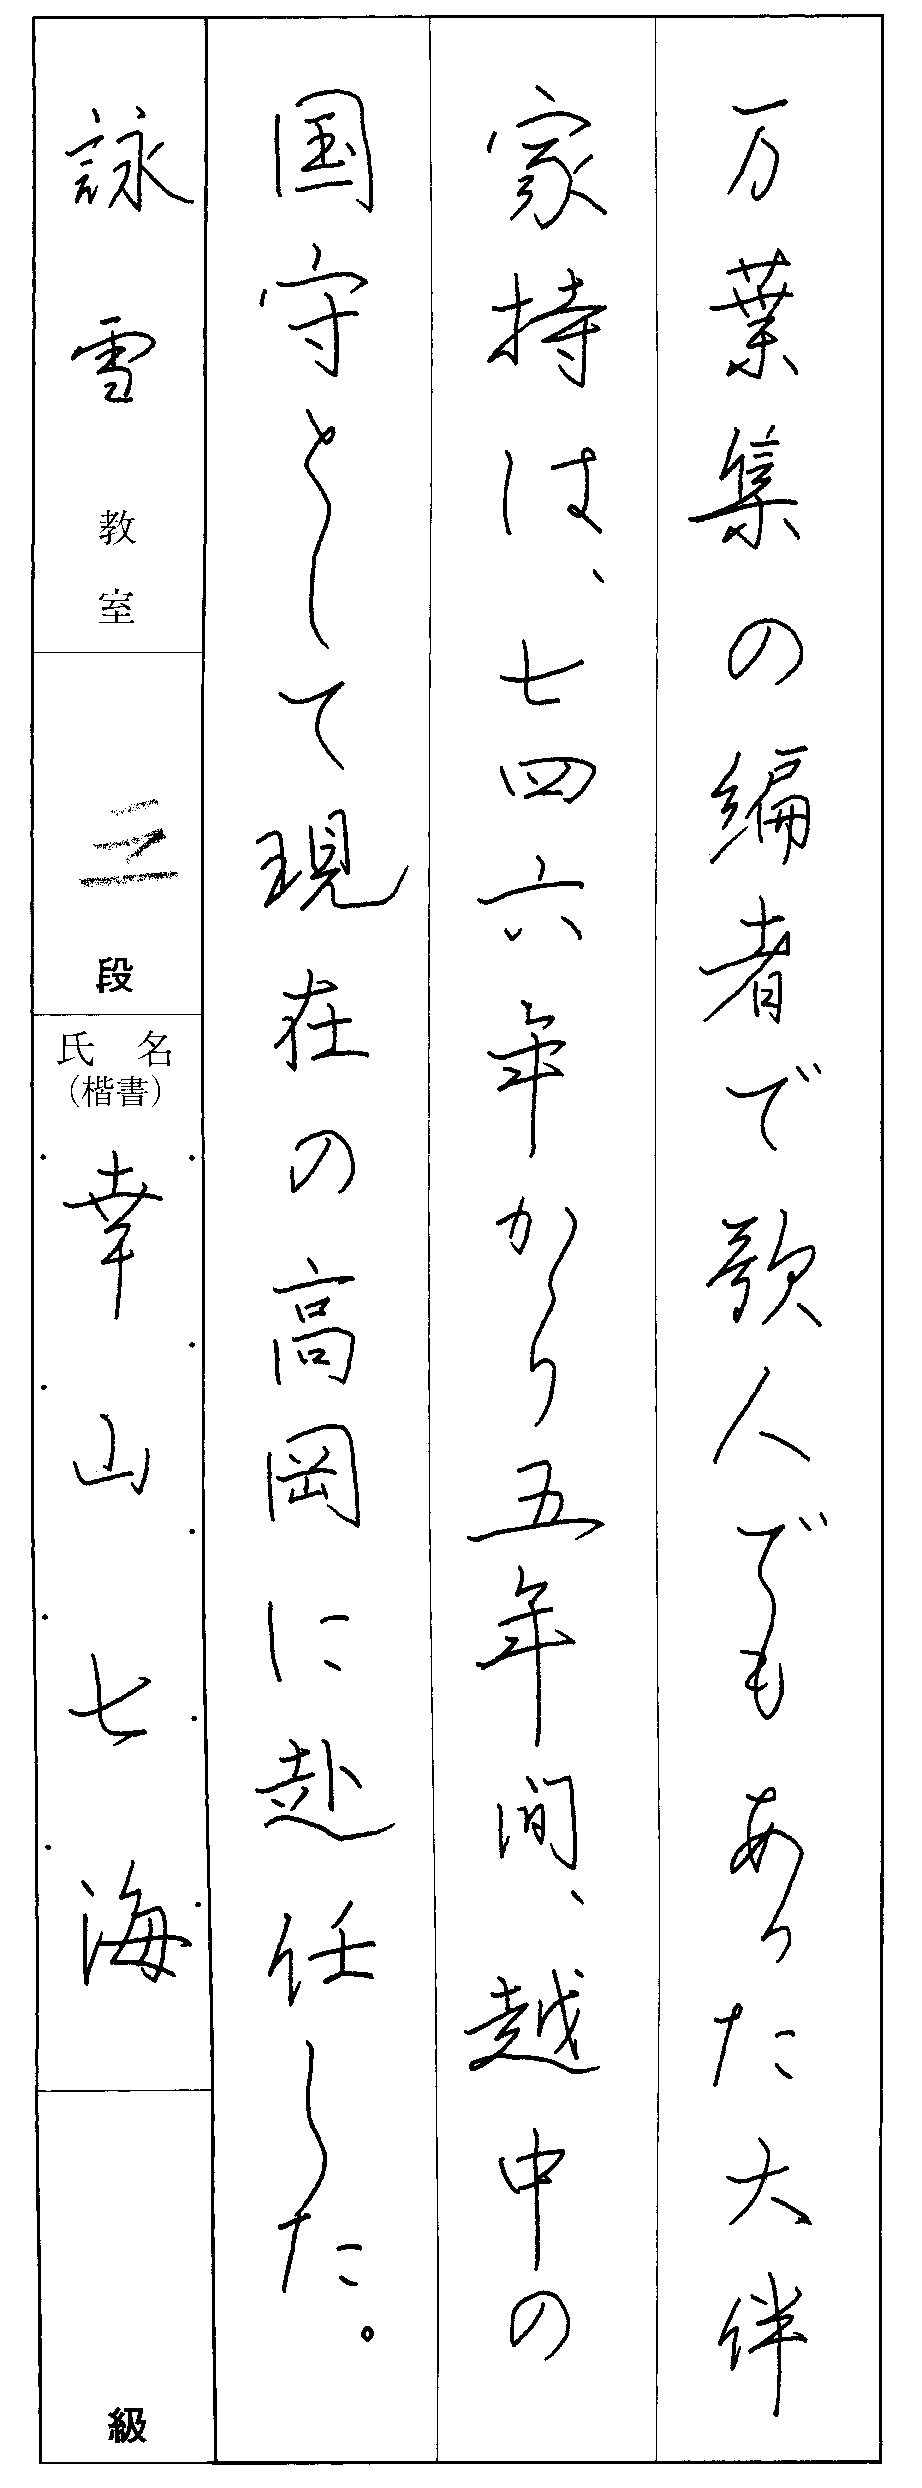 万葉集の編者で歌人でもあった大伴
家持は、七四六年から五年間、越中の
国守として現在の高岡に赴任した。
詠雪教室
三段
氏名
（楷書）
幸山七海
級